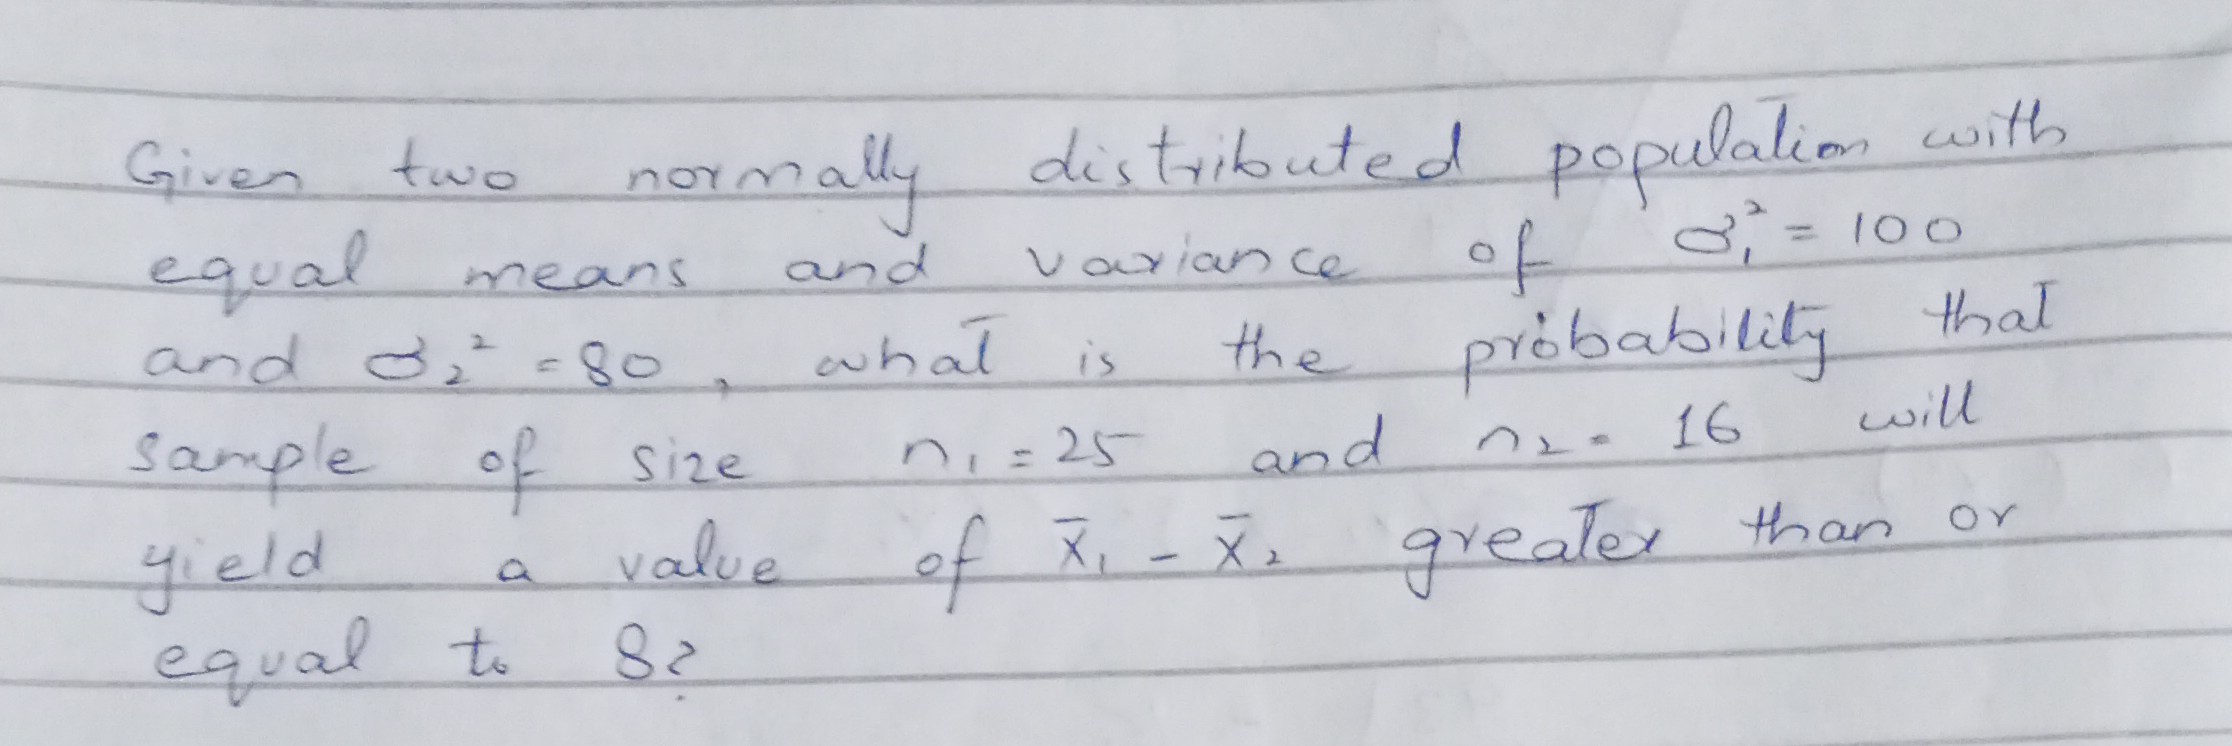 Given two normally distributed population with
equal means and variance of σ₁² = 100
and σ₂² = 80, what is the probability that
sample of size n₁ = 25 and n₂ = 16 will
yield a value of x̄₁ - x̄₂ greater than or
equal to 8?